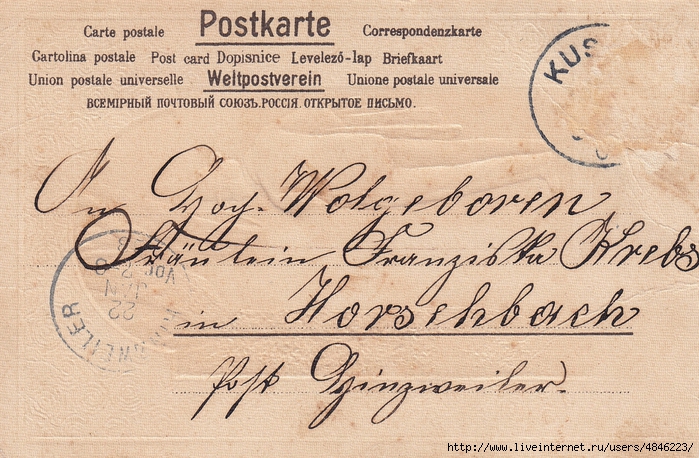 Postkarte
Carte postale Correspondenzkarte
Cartolina postale Post card Dopisnice Levelező-lap Briefkaart
Union postale universelle Weltpostverein Unione postale universale
ВСЕМІРНЫЙ ПОЧТОВЫЙ СОЮЗЪ.РОССІЯ.ОТКРЫТОЕ ПИСЬМО.
KUS
An Hoch Wolgeboren
Fräulein Franziska Krebs
in Horschbach
Post Ginzweiler.
22 JAN
WEILER
http://www.liveinternet.ru/users/4846223/